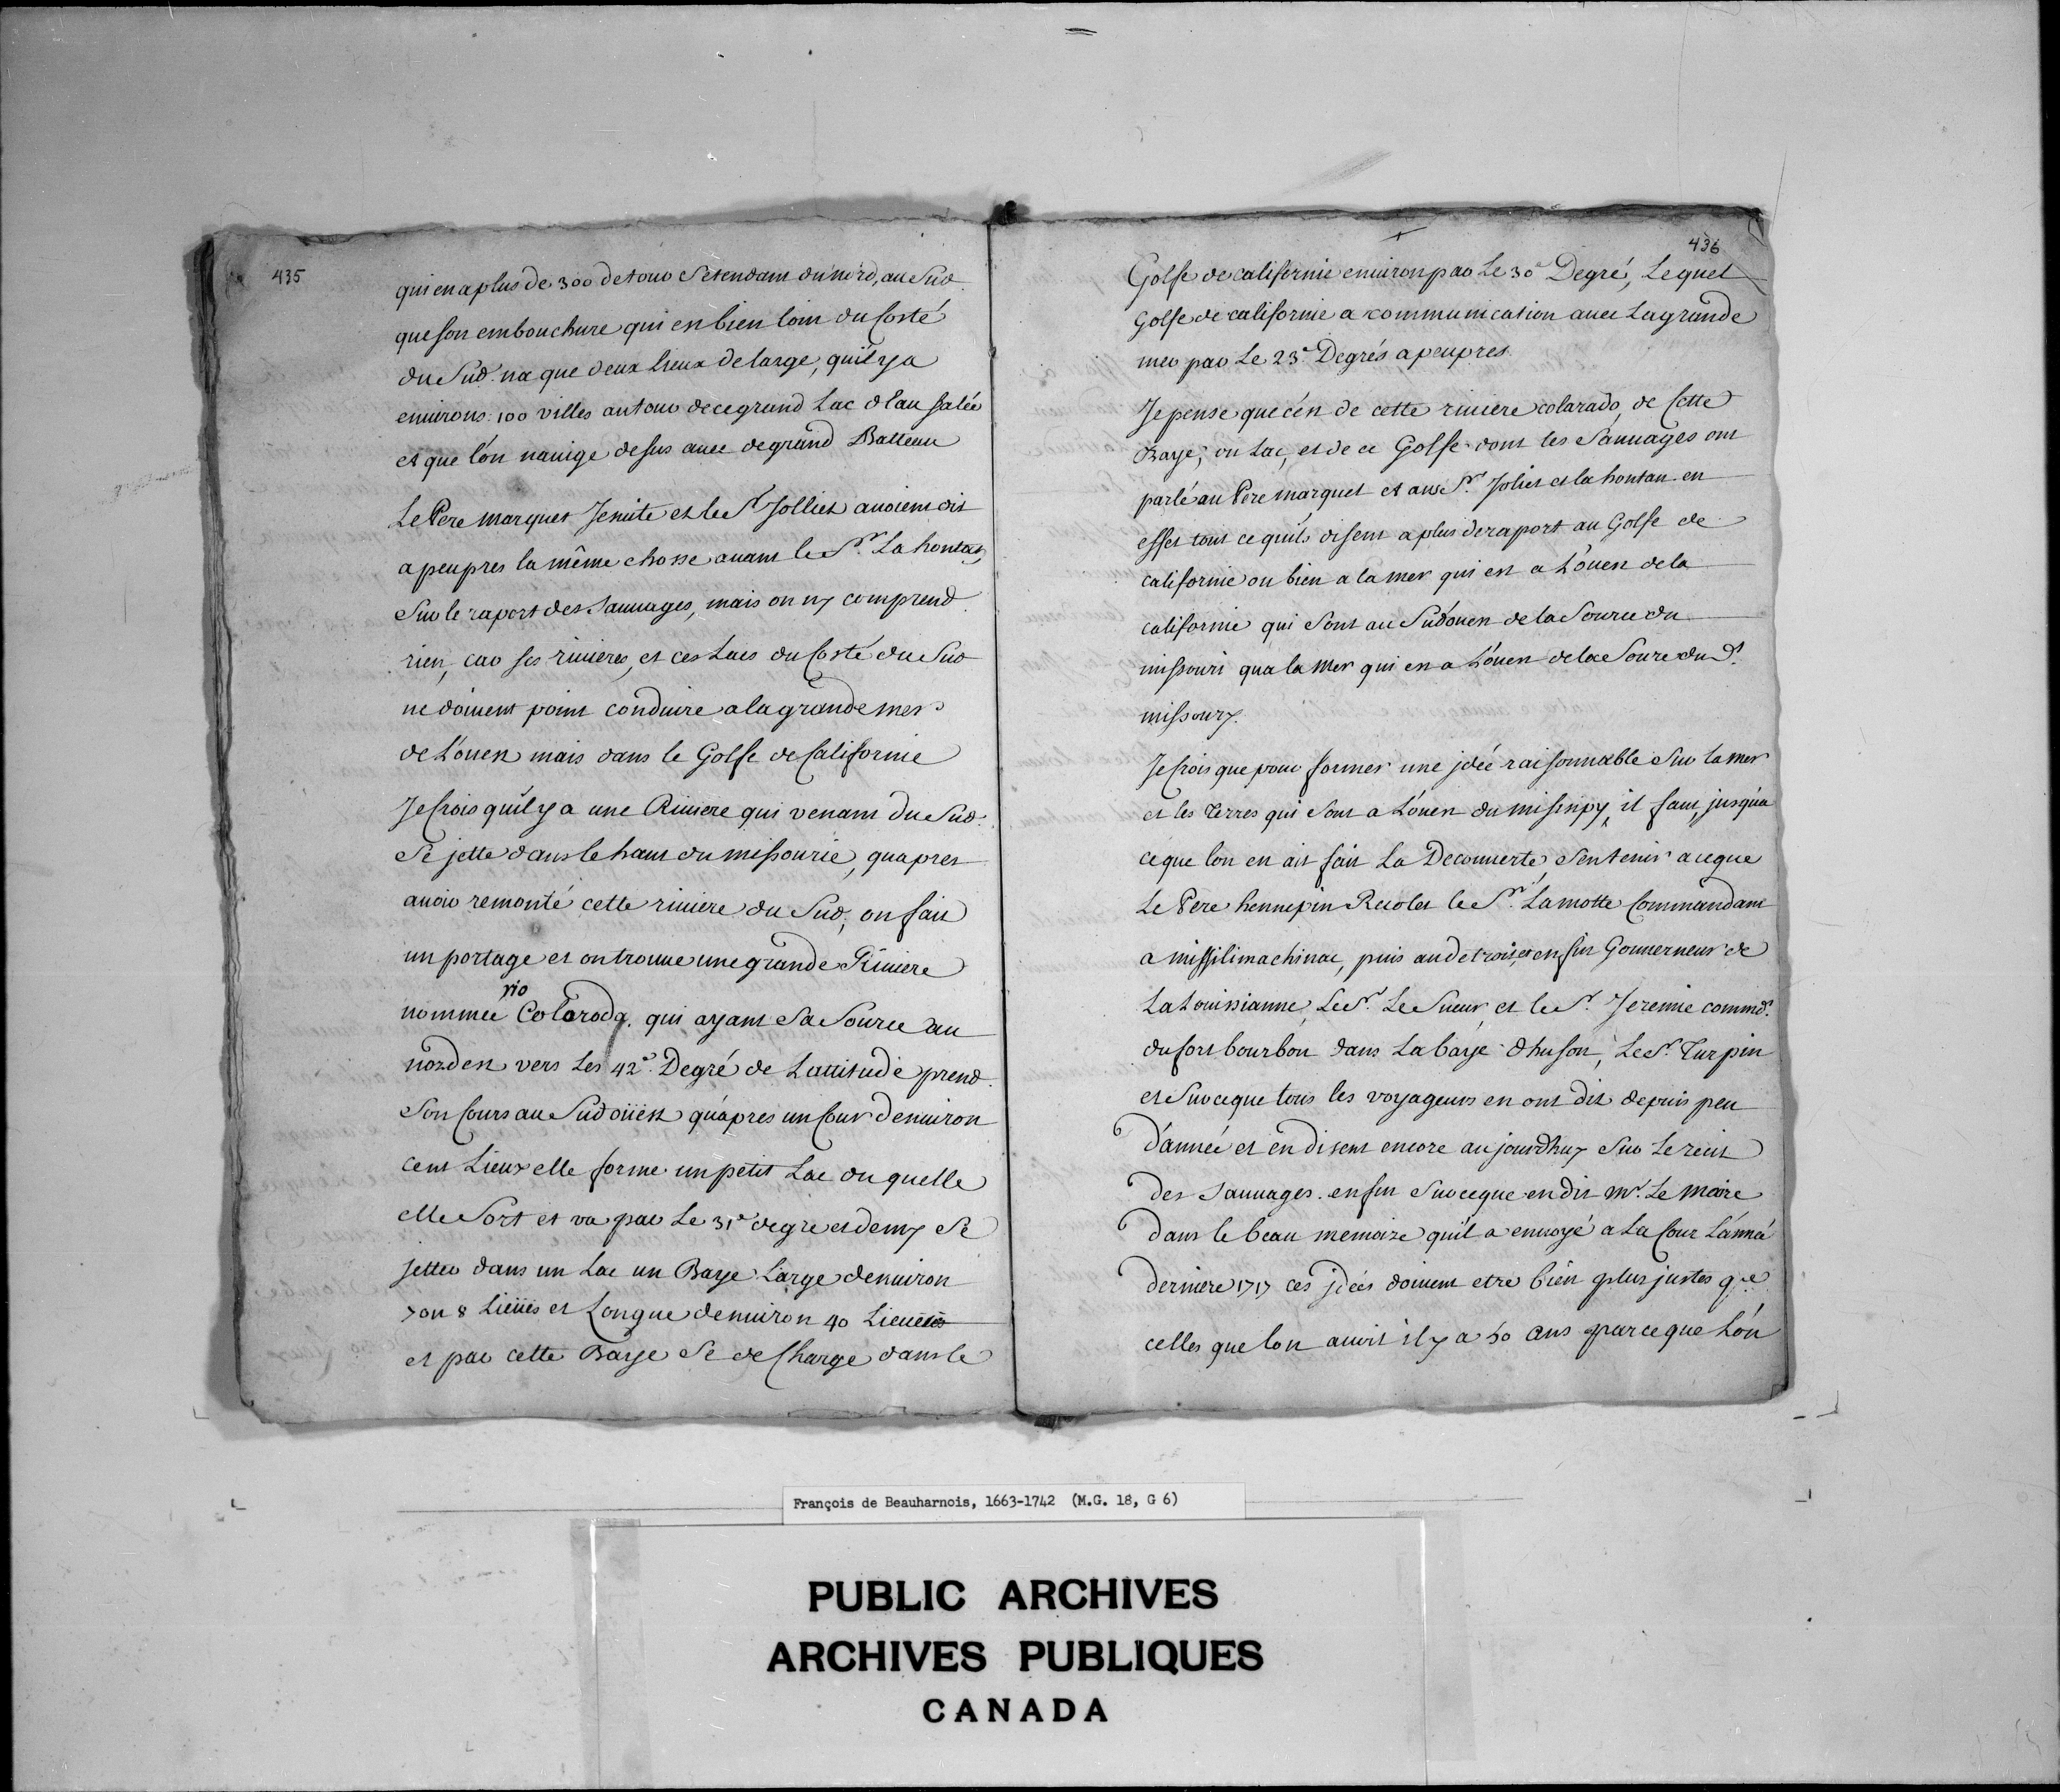 435
qui en a plus de 300 de tour s'etendant du nord, au Sud
que son embouchure qui est bien loin du Costé
du Sud na que deux lieux de large, qu'il y a
environs 100 villes autour de ce grand Lac d'Eau salée
et que l'on navige desus avec de grand Batteau
Le Pere marquet Jesuite et le Sr. Jolliet avoient dit
a peu pres la même chosse avant le Sr. La hontan,
Sur le raport des Sauvages, mais on ny comprend
rien, car ses rivieres, et ces Lacs du Costé du Sud
ne doivent point conduire a la grande mer
de L'ouest mais dans le Golfe de Californie
Je Crois qu'il y a une Riviere qui venant du Sud
Se jette dans le haut du missourie, qu'apres
avoir remonté cette riviere du Sud, on fait
un portage et on trouve une grande Riviere
nommée rio Colorado. qui ayant Sa Source au
nordest vers Les 42e. Degré de Lattitude prend
Son Cours au Sudoüest qu'apres un Cour denviron
cent Lieux elle forme un petit Lac ou quelle
elle Sort et va par Le 31e degre et demy Se
jetter dans un Lac un Baye Large denviron
7 ou 8 Lieües et Longue denviron 40 Lieües
et par cette Baye Se de Charge dans le
436
Golfe de californie environ par Le 30e Degré, Lequel
Golfe de californie a communication avec La grande
mer par Le 23e. Degrés a peu pres.
Je pense que c'est de cette riviere colarado, de Cette
Baye, ou Lac, et de ce Golfe dont les Sauvages ont
parlé au Pere marquet et aux Srs. Joliet et la hontan. en
effet tout ce quils disent a plus de raport au Golfe de
californie ou bien a la mer qui est a L'ouest de la
californie qui Sont au Sudouest de la Source du
missouri qua la mer qui est a L'ouest de la Source du d.
missoury.
Je Crois que pour former une jdée raisonnable Sur la mer
et les Terres qui Sont a L'ouest du missispy, il faut, jusqu'a
ce que lon en ait fait La Decouverte, Sen tenir a ce que
Le Pere hennepin Recolet le Sr. Lamotte Commandant
a missilimachinac, puis au detroit, et enfin Gouverneur de
La Louissianne, Le Sr. Le Sueur, et le Sr. Jeremie commdt.
du fort bourbon dans La baye d'huson, Le Sr. Turpin
et Sur ce que tous les voyageurs en ont dit depuis peu
d'année et en disent encore aujourdhuy Sur Le recit
des Sauvages. enfin Sur ce que en dit Mr. Le Maire
dans le beau memoire qu'il a envoyé a La Cour L'anné
derniere 1717 ces jdées doivent etre bien plus justes que
celles que lon avoit il y a 50 ans parce que L'on
François de Beauharnois, 1663-1742 (M.G. 18, G 6)
PUBLIC ARCHIVES
ARCHIVES PUBLIQUES
CANADA